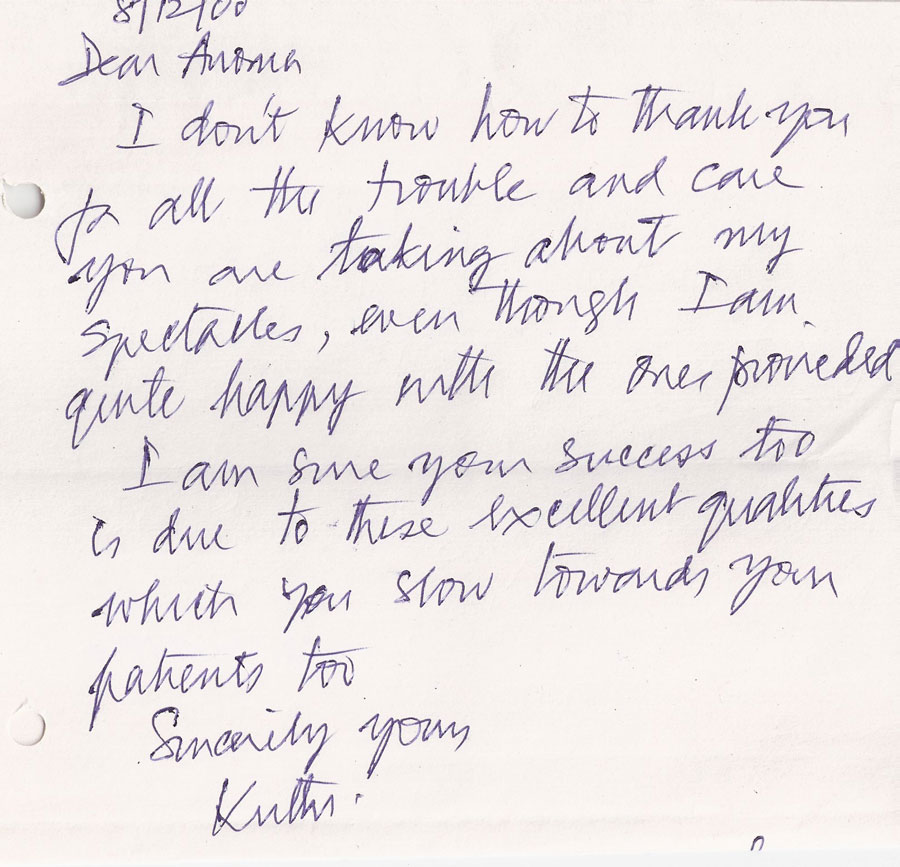 8/12/00
Dear Anoma
I don't know how to thank you
for all the trouble and care
you are taking about my
spectacles, even though I am
quite happy with the ones provieded
I am sure your success too
is due to these excellent qualities
which you slow towards your
patients too
Sincerily yours